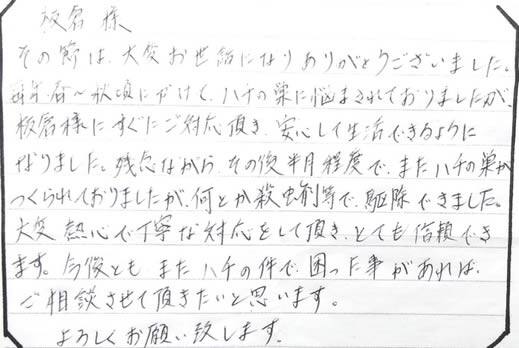 板倉 様
その節は、大変お世話になりありがとうございました。
毎年春～秋頃にかけて、ハチの巣に悩まされておりましたが、
板倉様にすぐにご対応頂き、安心して生活できるように
なりました。残念ながら、その後半月程度で、またハチの巣が
つくられておりましたが、何とか殺虫剤等で、駆除できました。
大変熱心で丁寧な対応をして頂き、とても信頼でき
ます。今後とも またハチの件で、困った事があれば、
ご相談させて頂きたいと思います。
よろしくお願い致します。